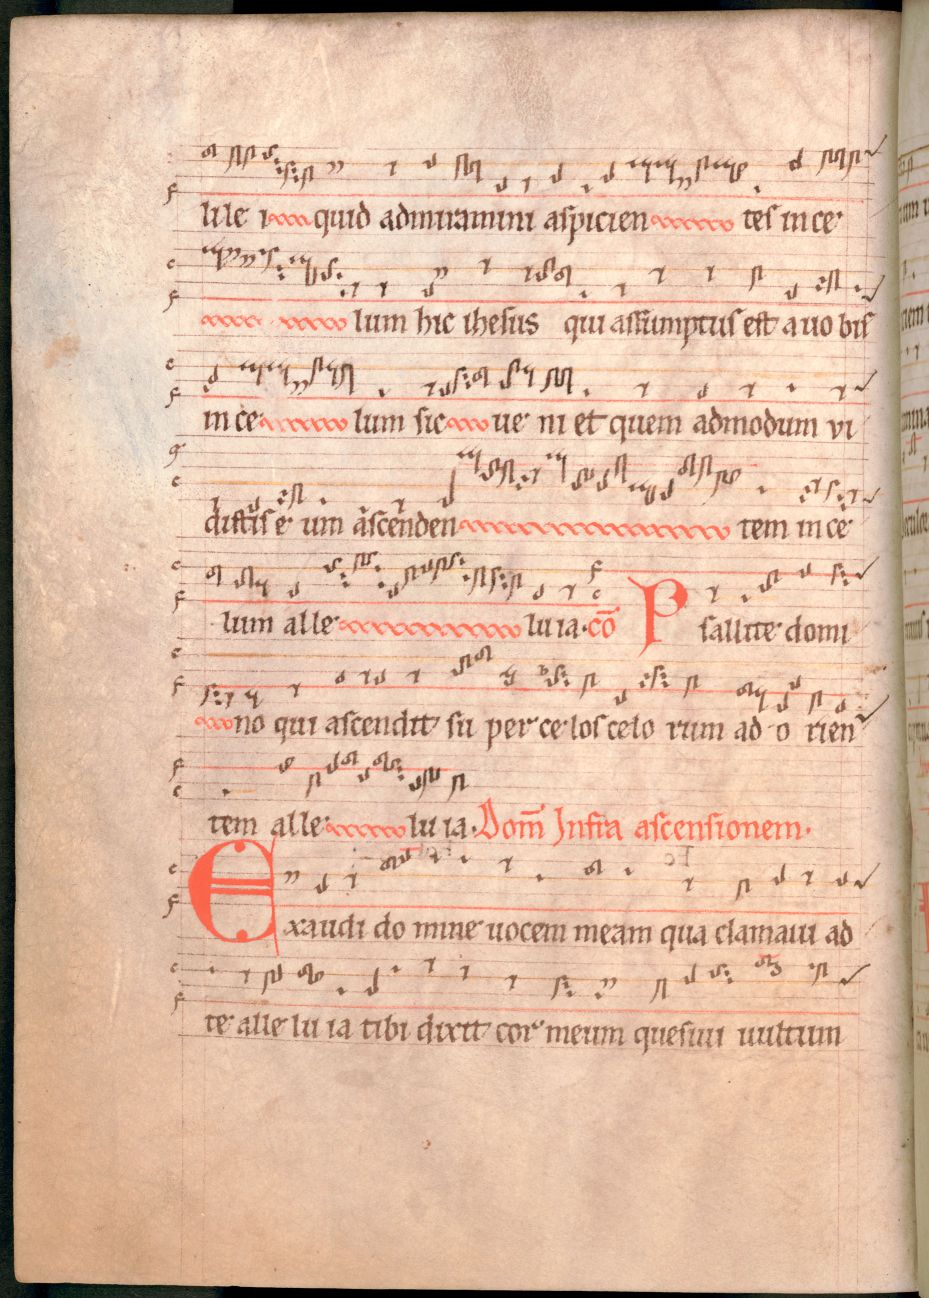 lile i quid admiramini aspicien tes in ce
lum hic ihesus qui assumptus est a uo bis
in ce lum sic ue ni et quem admodum vi
distis e um ascenden tem in ce
lum alle lu ia. cō Psallite domi
no qui ascendit su per ce los celo rum ad o rien
tem alle lu ia. Dom̄ Infra ascensionem.
Exaudi do mine uocem meam qua clamaui ad
te alle lu ia tibi dixit cor meum quesiui uultum